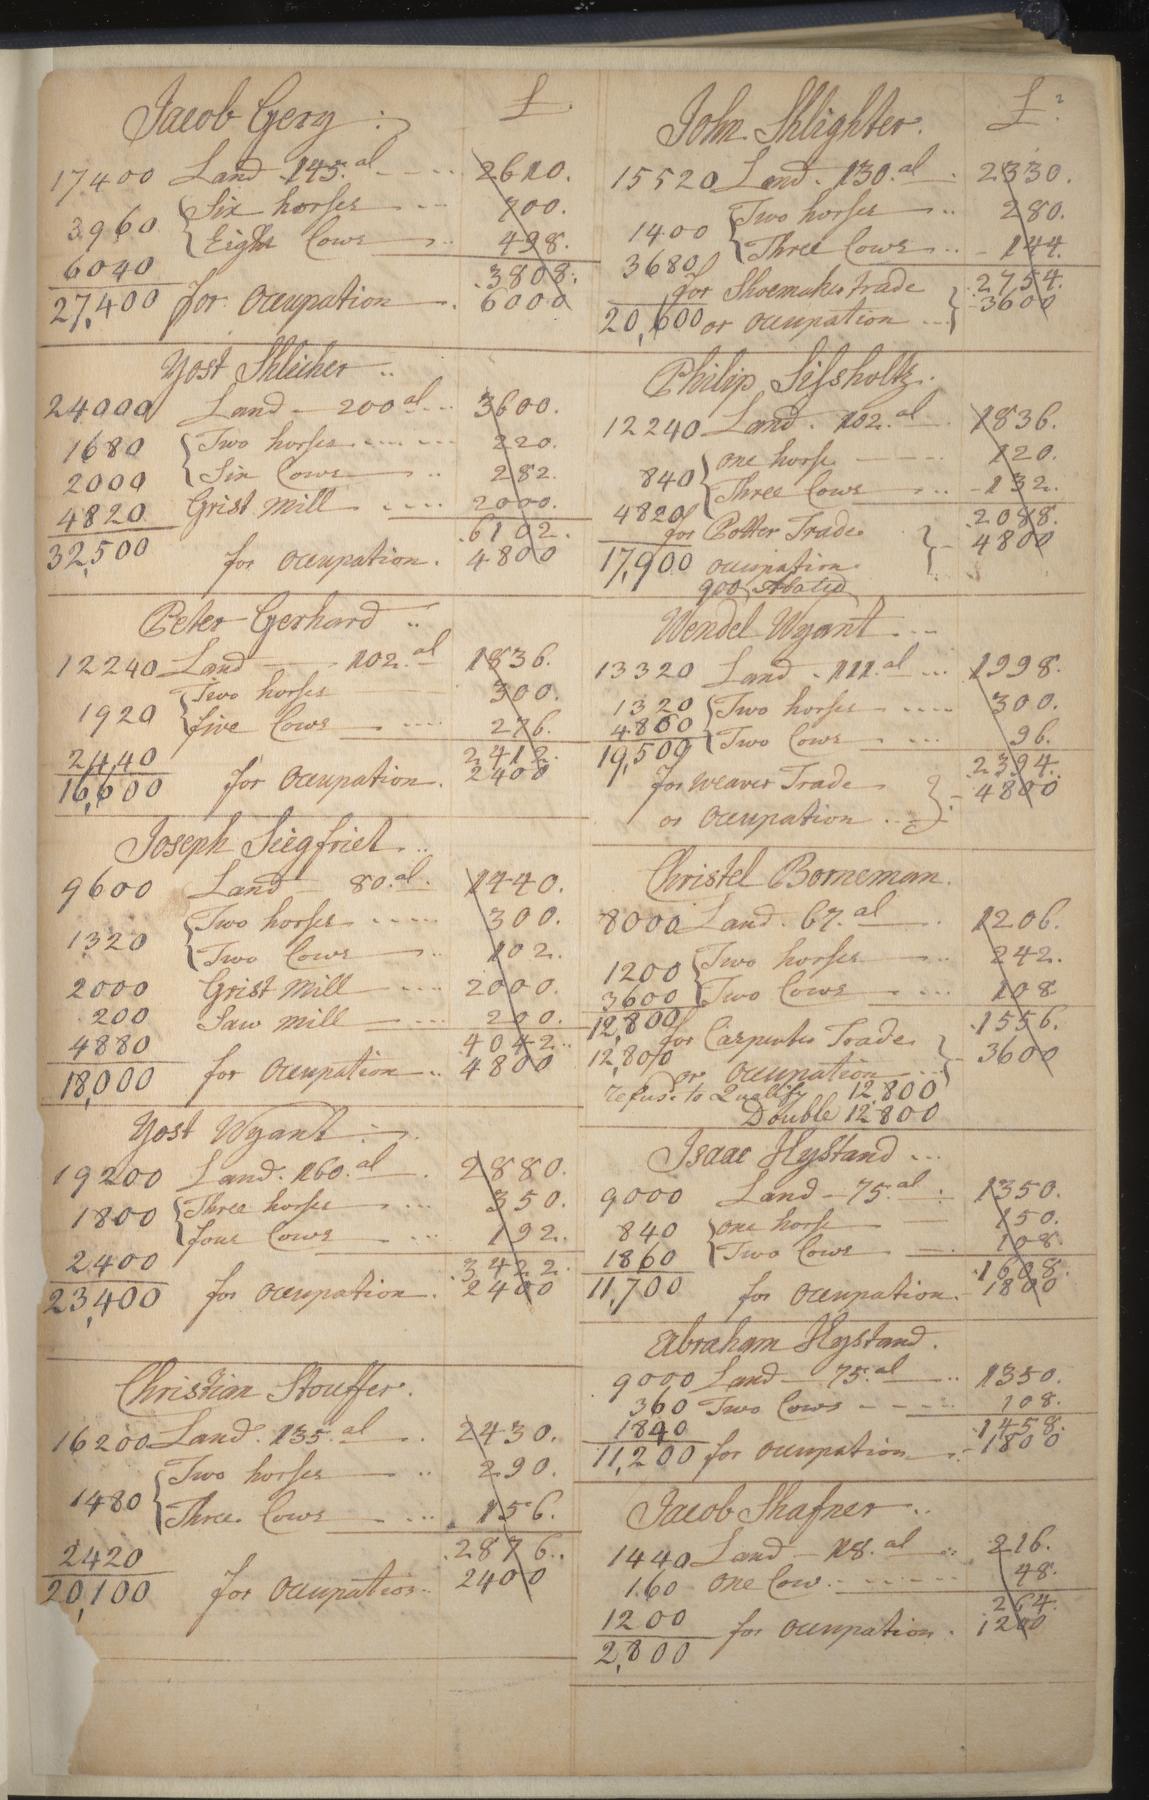 Jacob Gery : £.
17400 Land 145. al 2610.
3960 Six horses 700.
Eight Cows 498.
6040 3808.
27,400 for Occupation 6000
Yost Shlicher
24000 Land 200 al 3600.
1680 Two horses 220.
2000 Six Cows 282.
4820 Grist Mill 2000.
6102.
32,500 for Occupation. 4800
Peter Gerhard
12240 Land 102. al 1836.
1920 Two horses 300.
five Cows 276.
2440 2412.
16,600 for Occupation. 2400
Joseph Siegfriet.
9600 Land 80. al. 1440.
1320 Two horses 300.
Two Cows 102.
2000 Grist Mill 2000.
200 Saw Mill 200.
4880 4042.
18,000 for Occupation 4800
Yost Wyant
19200 Land. 160. al 2880.
1800 Three horses 350.
four Cows 192.
2400 3422.
23,400 for Occupation. 2400
Christian Stouffer.
16200 Land. 135. al 2430.
1480 Two horses 290.
Three Cows 156.
2420 2876.
20,100 for Occupation 2400
John Shlighter. £. 2
15520 Land. 130. al 2330.
1400 Two horses 280.
Three Cows 144.
3680 for Shoemaker trade 2754.
20,600 or Occupation 3600
Philip Sissholtz.
12240 Land. 102. al 1836.
840 one horse 120.
Three Cows 132.
4820 for Potter Trade 2088.
17,900 occupation 4800
900 Abated
Wendel Wyant
13320 Land. 111. al 1998.
1320 Two horses 300.
4860 Two Cows 96.
19,500 2394.
for Weaver Trade 4800
or Occupation
Christel Borneman.
8000 Land. 67. al 1206.
1200 Two horses 242.
3600 Two Cows 108
12,800 for Carpenter Trade 1556.
12,800 or Occupation 3600
refuse to Qualify 12,800
Double 12800
Isaac Hystand
9000 Land 75. al 1350.
840 one horse 150.
1860 Two Cows 108.
11,700 for Occupation. 1608.
1800
Abraham Hystand.
9000 Land 75. al 1350.
360 Two Cows 108.
1840 1458.
11,200 for Occupation 1800
Jacob Shafner
1440 Land 18. al 216.
160 One Cow. 48.
264.
1200 for Occupation. 1200
2,800